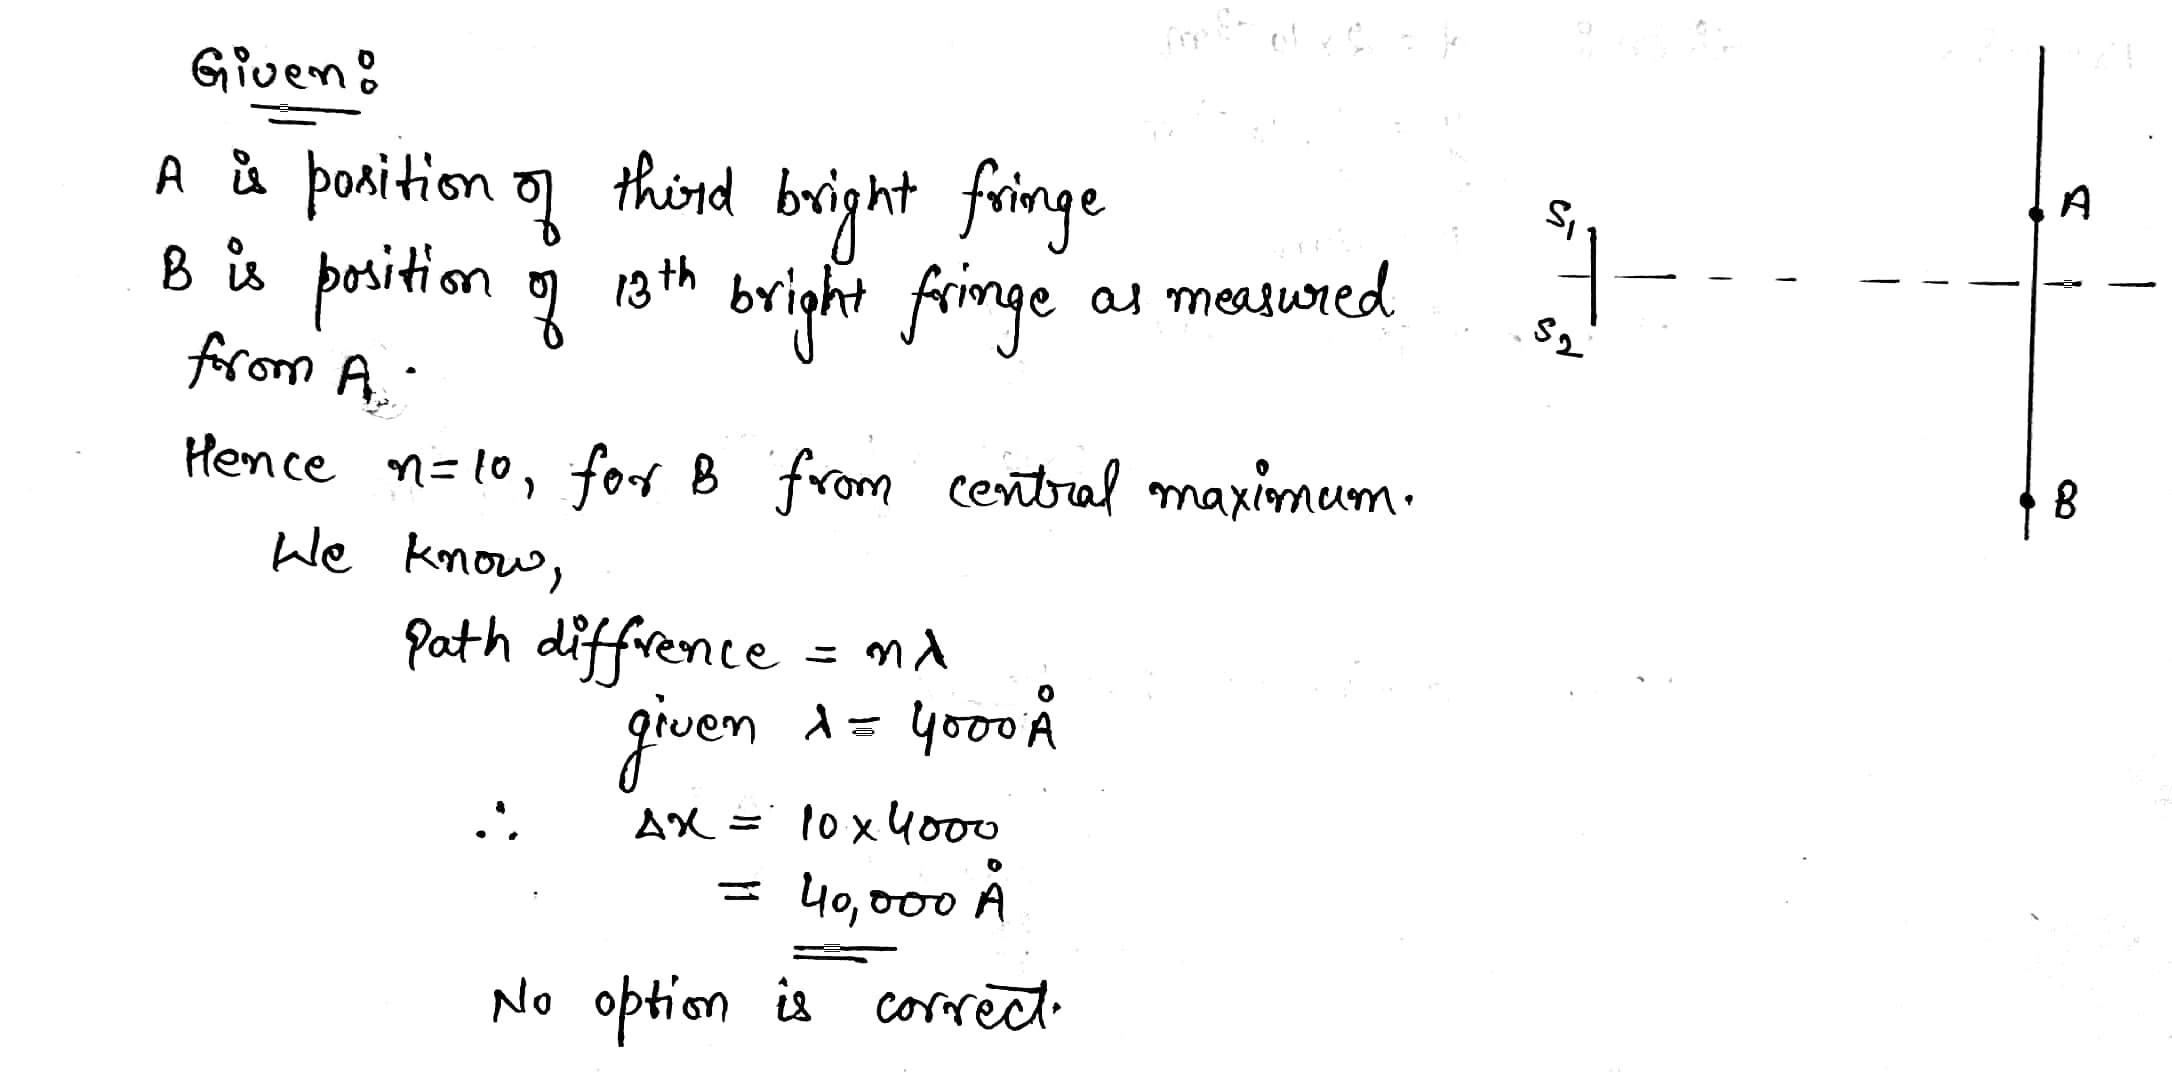 Given:
A is position of third bright fringe
B is position of 13th bright fringe as measured
from A.
Hence n=10, for B from central maximum.
We know,
Path diffrence = nλ
given λ = 4000 Å
∴ Δx = 10 x 4000
= 40,000 Å
No option is correct.
S1
S2
A
B